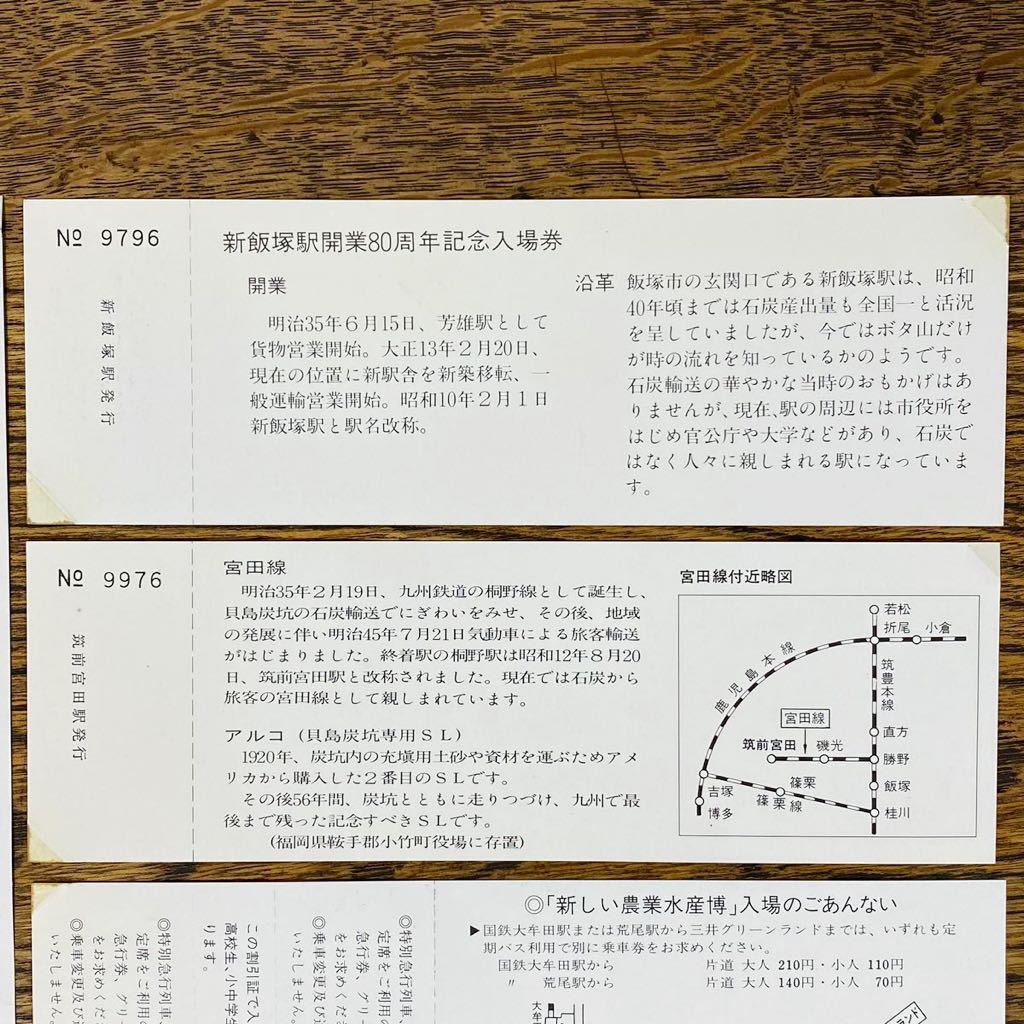 № 9796
新飯塚駅発行
新飯塚駅開業80周年記念入場券
開業
明治35年6月15日、芳雄駅として
貨物営業開始。大正13年2月20日、
現在の位置に新駅舎を新築移転、一
般運輸営業開始。昭和10年2月1日
新飯塚駅と駅名改称。
沿革
飯塚市の玄関口である新飯塚駅は、昭和
40年頃までは石炭産出量も全国一と活況
を呈していましたが、今ではボタ山だけ
が時の流れを知っているかのようです。
石炭輸送の華やかな当時のおもかげはあ
りませんが、現在、駅の周辺には市役所を
はじめ官公庁や大学などがあり、石炭で
はなく人々に親しまれる駅になっていま
す。
№ 9976
筑前宮田駅発行
宮田線
明治35年2月19日、九州鉄道の桐野線として誕生し、
貝島炭坑の石炭輸送でにぎわいをみせ、その後、地域
の発展に伴い明治45年7月21日気動車による旅客輸送
がはじまりました。終着駅の桐野駅は昭和12年8月20
日、筑前宮田駅と改称されました。現在では石炭から
旅客の宮田線として親しまれています。
アルコ(貝島炭坑専用SL)
1920年、炭坑内の充塡用土砂や資材を運ぶためアメ
リカから購入した2番目のSLです。
その後56年間、炭坑とともに走りつづけ、九州で最
後まで残った記念すべきSLです。
(福岡県鞍手郡小竹町役場に存置)
宮田線付近略図
若松
折尾
小倉
鹿児島本線
筑豊本線
宮田線
直方
筑前宮田
磯光
勝野
篠栗
飯塚
吉塚
篠栗線
桂川
博多
◎「新しい農業水産博」入場のごあんない
▶国鉄大牟田駅または荒尾駅から三井グリーンランドまでは、いずれも定
期バス利用で別に乗車券をお求めください。
国鉄大牟田駅から 片道 大人 210円・小人 110円
〃 荒尾駅から 片道 大人 140円・小人 70円
大牟
ランド
◎特別急行列車、
定席をご利用の
急行券、グリー
をお求めくださ
◎乗車変更及び
いたしません。
この割引証で入
高校生、小中学生
ります。
◎特別急行列車、
定席をご利用
急行券、グ
をお求めくだ
◎乗車変更及び
いたしま